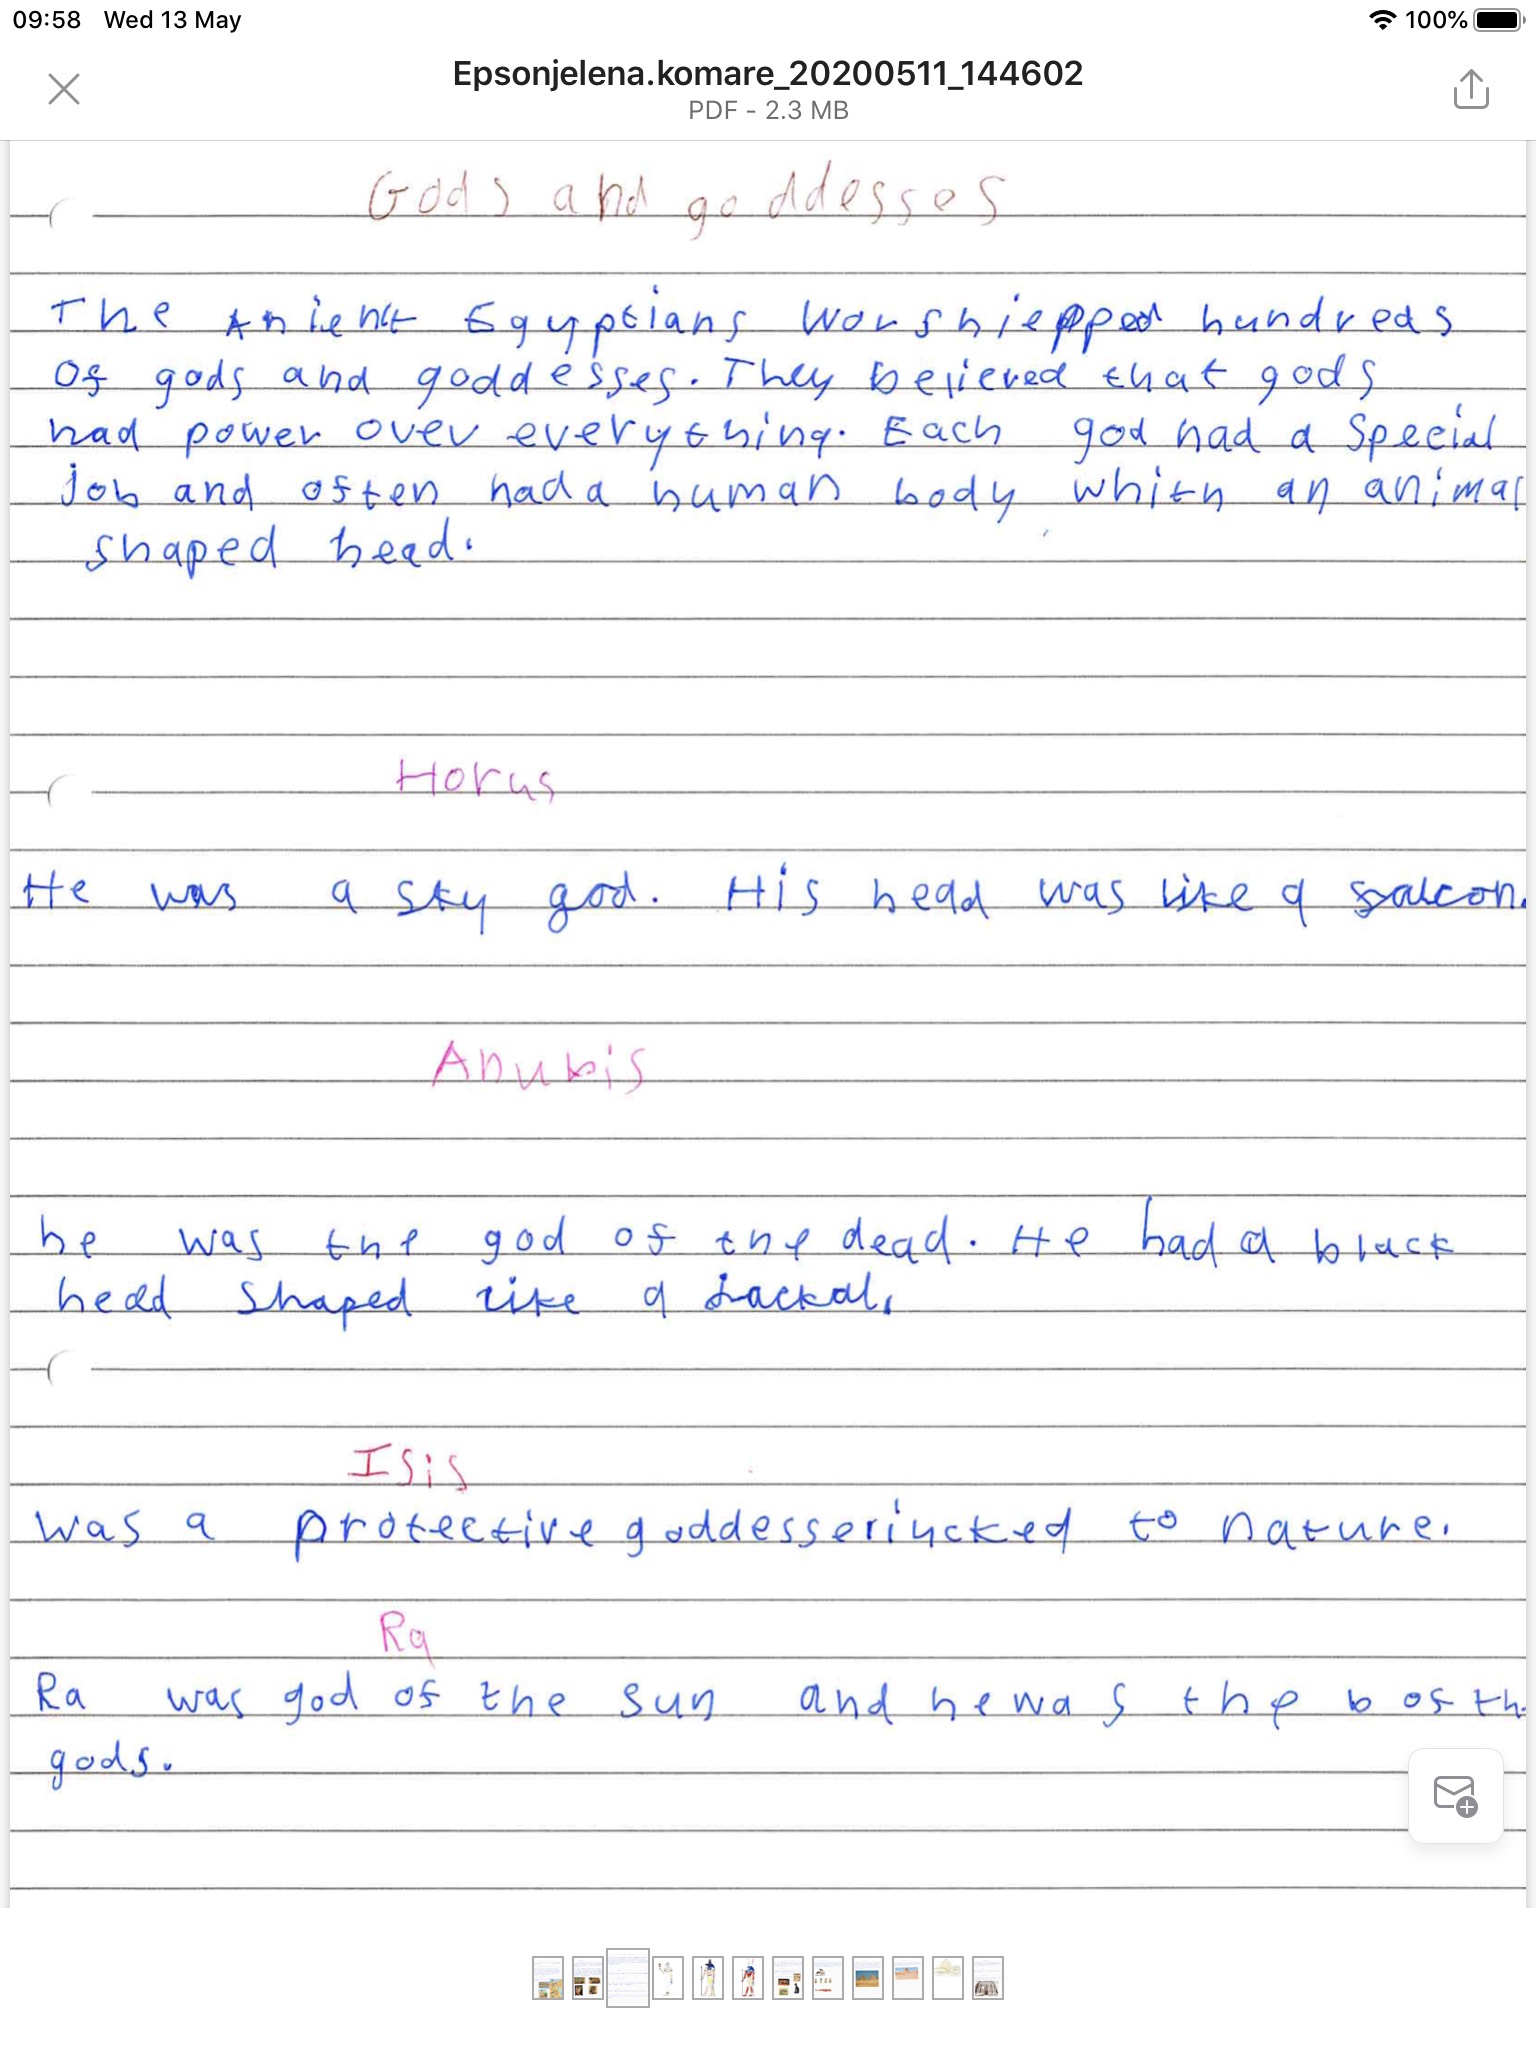 09:58 Wed 13 May
100%
Epsonjelena.komare_20200511_144602
PDF - 2.3 MB
Gods and goddesses
The Anient Egyptians worshiepped hundreds
of gods and goddesses. They believed that gods
had power over everything. Each god had a special
job and often had a human body whith an animal
shaped head.
Horus
He was a sky god. His head was like a falcon.
Anubis
he was the god of the dead. He had a black
head shaped like a Jackal.
Isis
was a protective goddess to nature.
Ra
Ra was god of the sun and he was the b of th
gods.